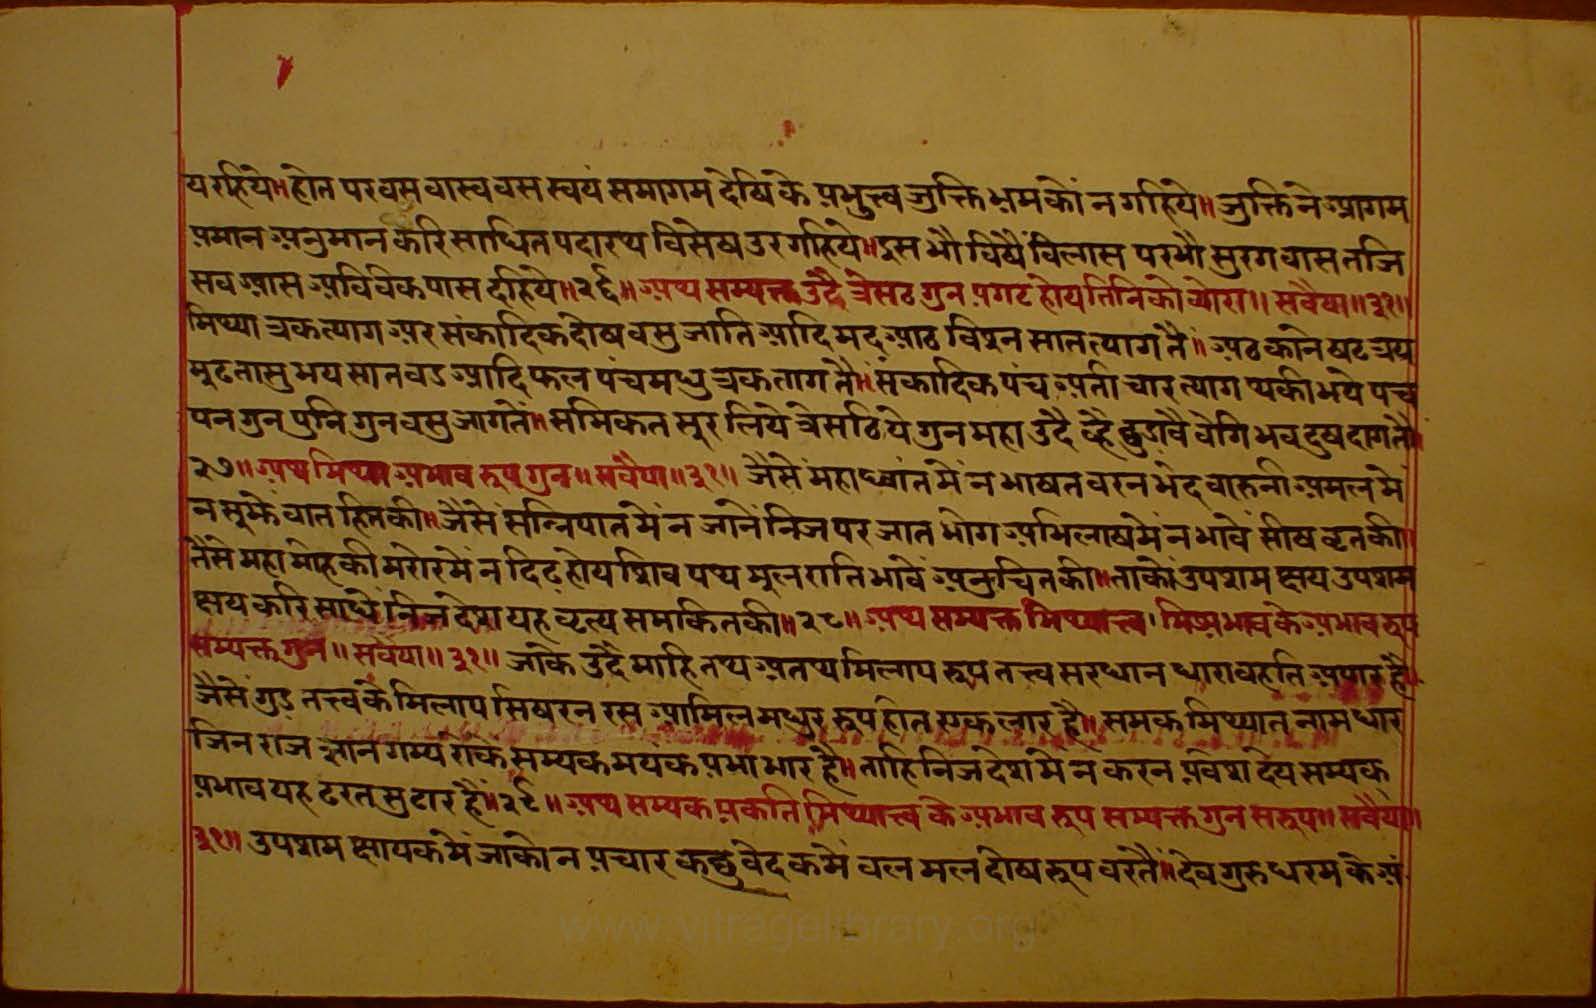 य रहिये॥ होत परवस वा स्ववस स्वयं समागम देषिके प्रभुत्त्व जुक्ति भ्रमकों न गहिये॥ जुक्तिने आगम
प्रमान अनुमान करि साधित पदारथ विसेष उर गहिये॥ इस भौ विषैं विलास परभौ सुरग वास तजि
सव आस अविवेक पास दहिये॥२६॥ अथ सम्यक्त उदै त्रेसठ गुन प्रगट होय तिनिको व्योरा॥ सवैया॥३१॥
मिथ्या त्रक त्याग अर संकादिक दोष वसु जाति आदि मद आठ विश्न सात त्याग तैं॥ अठ कोने षट त्रय
मुढता सु भय सात वड आदि फल पंच मधु त्रक ताग तौ॥ संकादिक पंच अतीचार त्याग थकी भये पंच
पन गुन पुनि गुन वसु जागतें॥ समिकत सुर लिये त्रेसठि ये गुन महा उदै व्है छुडावै वेगि भव दुष दाग तौ॥
२७॥ अथ मिथ्या अभाव रुप गुन॥ सवैया॥३१॥ जैसें महाध्वांत में न भाषत वरन भेद वारुनी अमल में
न सुझें वात हितकी॥ जैसें सन्निपात में न जानें निज पर जात भोग अभिलाष में न भावें सीष वृतकी॥
तैसे महा मोहकी मरोर में न दिढ होय शिव पथ मुल राति भावें अनुचितकी॥ ताकों उपशम क्षय उपशम
क्षय करि साधें निज देश यह वृत्य समकितकी॥२८॥ अथ सम्यक्त मिथ्यात्त्व। मिश्र भाव के अभाव रुप
सम्यक्त गुन॥ सवैया॥३१॥ जाके उदै माहि तथ अतथ मिलाप रुप तत्त्व सरधान धारा वहति अपार है॥
जैसें गुड तत्त्व के मिलाप सिषरन रस आमिल मधुर रुप होत एक लार है॥ समक मिथ्यात नाम धार
जिन राज ज्ञान गम्य राक सम्यक मयंक प्रभा भार है॥ ताहि निज देश में न करन प्रवेश देय सम्यक
प्रभाव यह टरत सुढार हैं॥२९॥ अथ सम्यक प्रकति मिथ्यात्त्व के अभाव रुप सम्यक्त गुन सरुप॥ सवैया॥
३१॥ उपशम क्षायक में जाको न प्रचार कछु वेदक में चल मल दोष रुप वरतै॥ देव गुरु धरम के अं
www.vitragelibrary.org